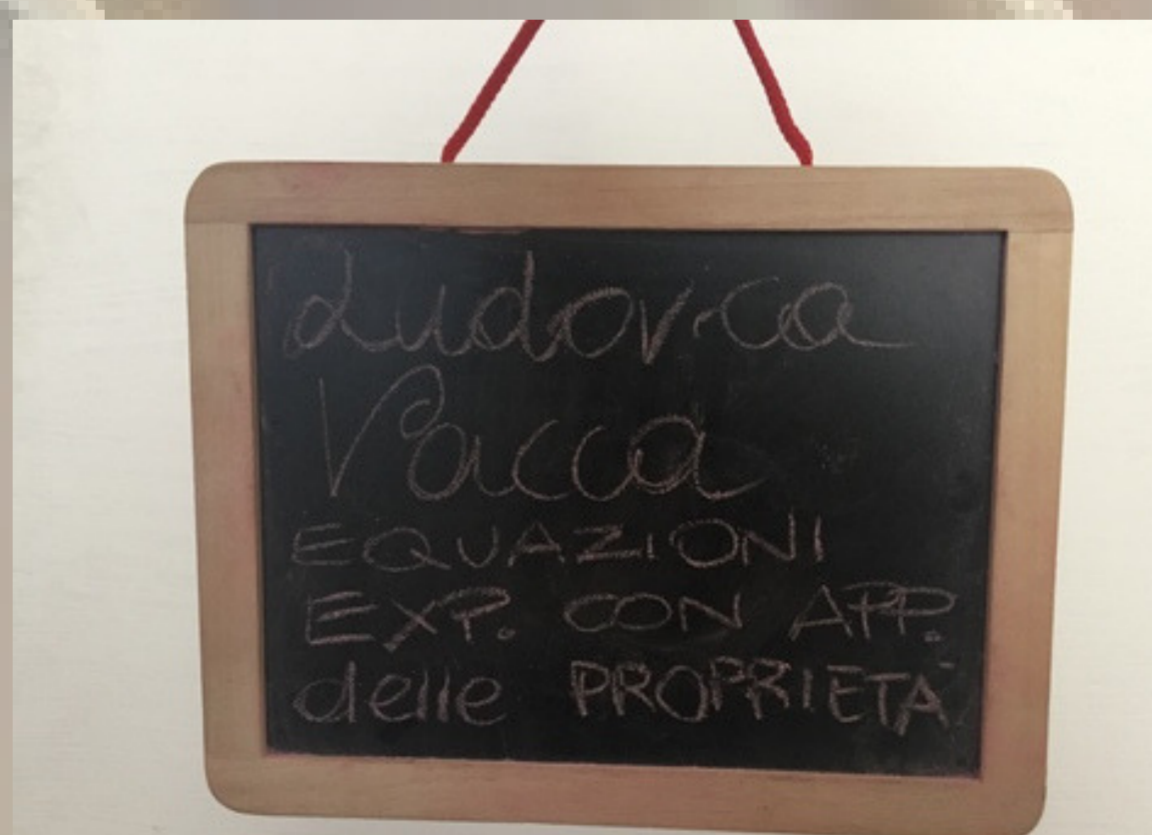 Ludovica
Vacca
EQUAZIONI
EXP. CON APP.
delle PROPRIETÀ